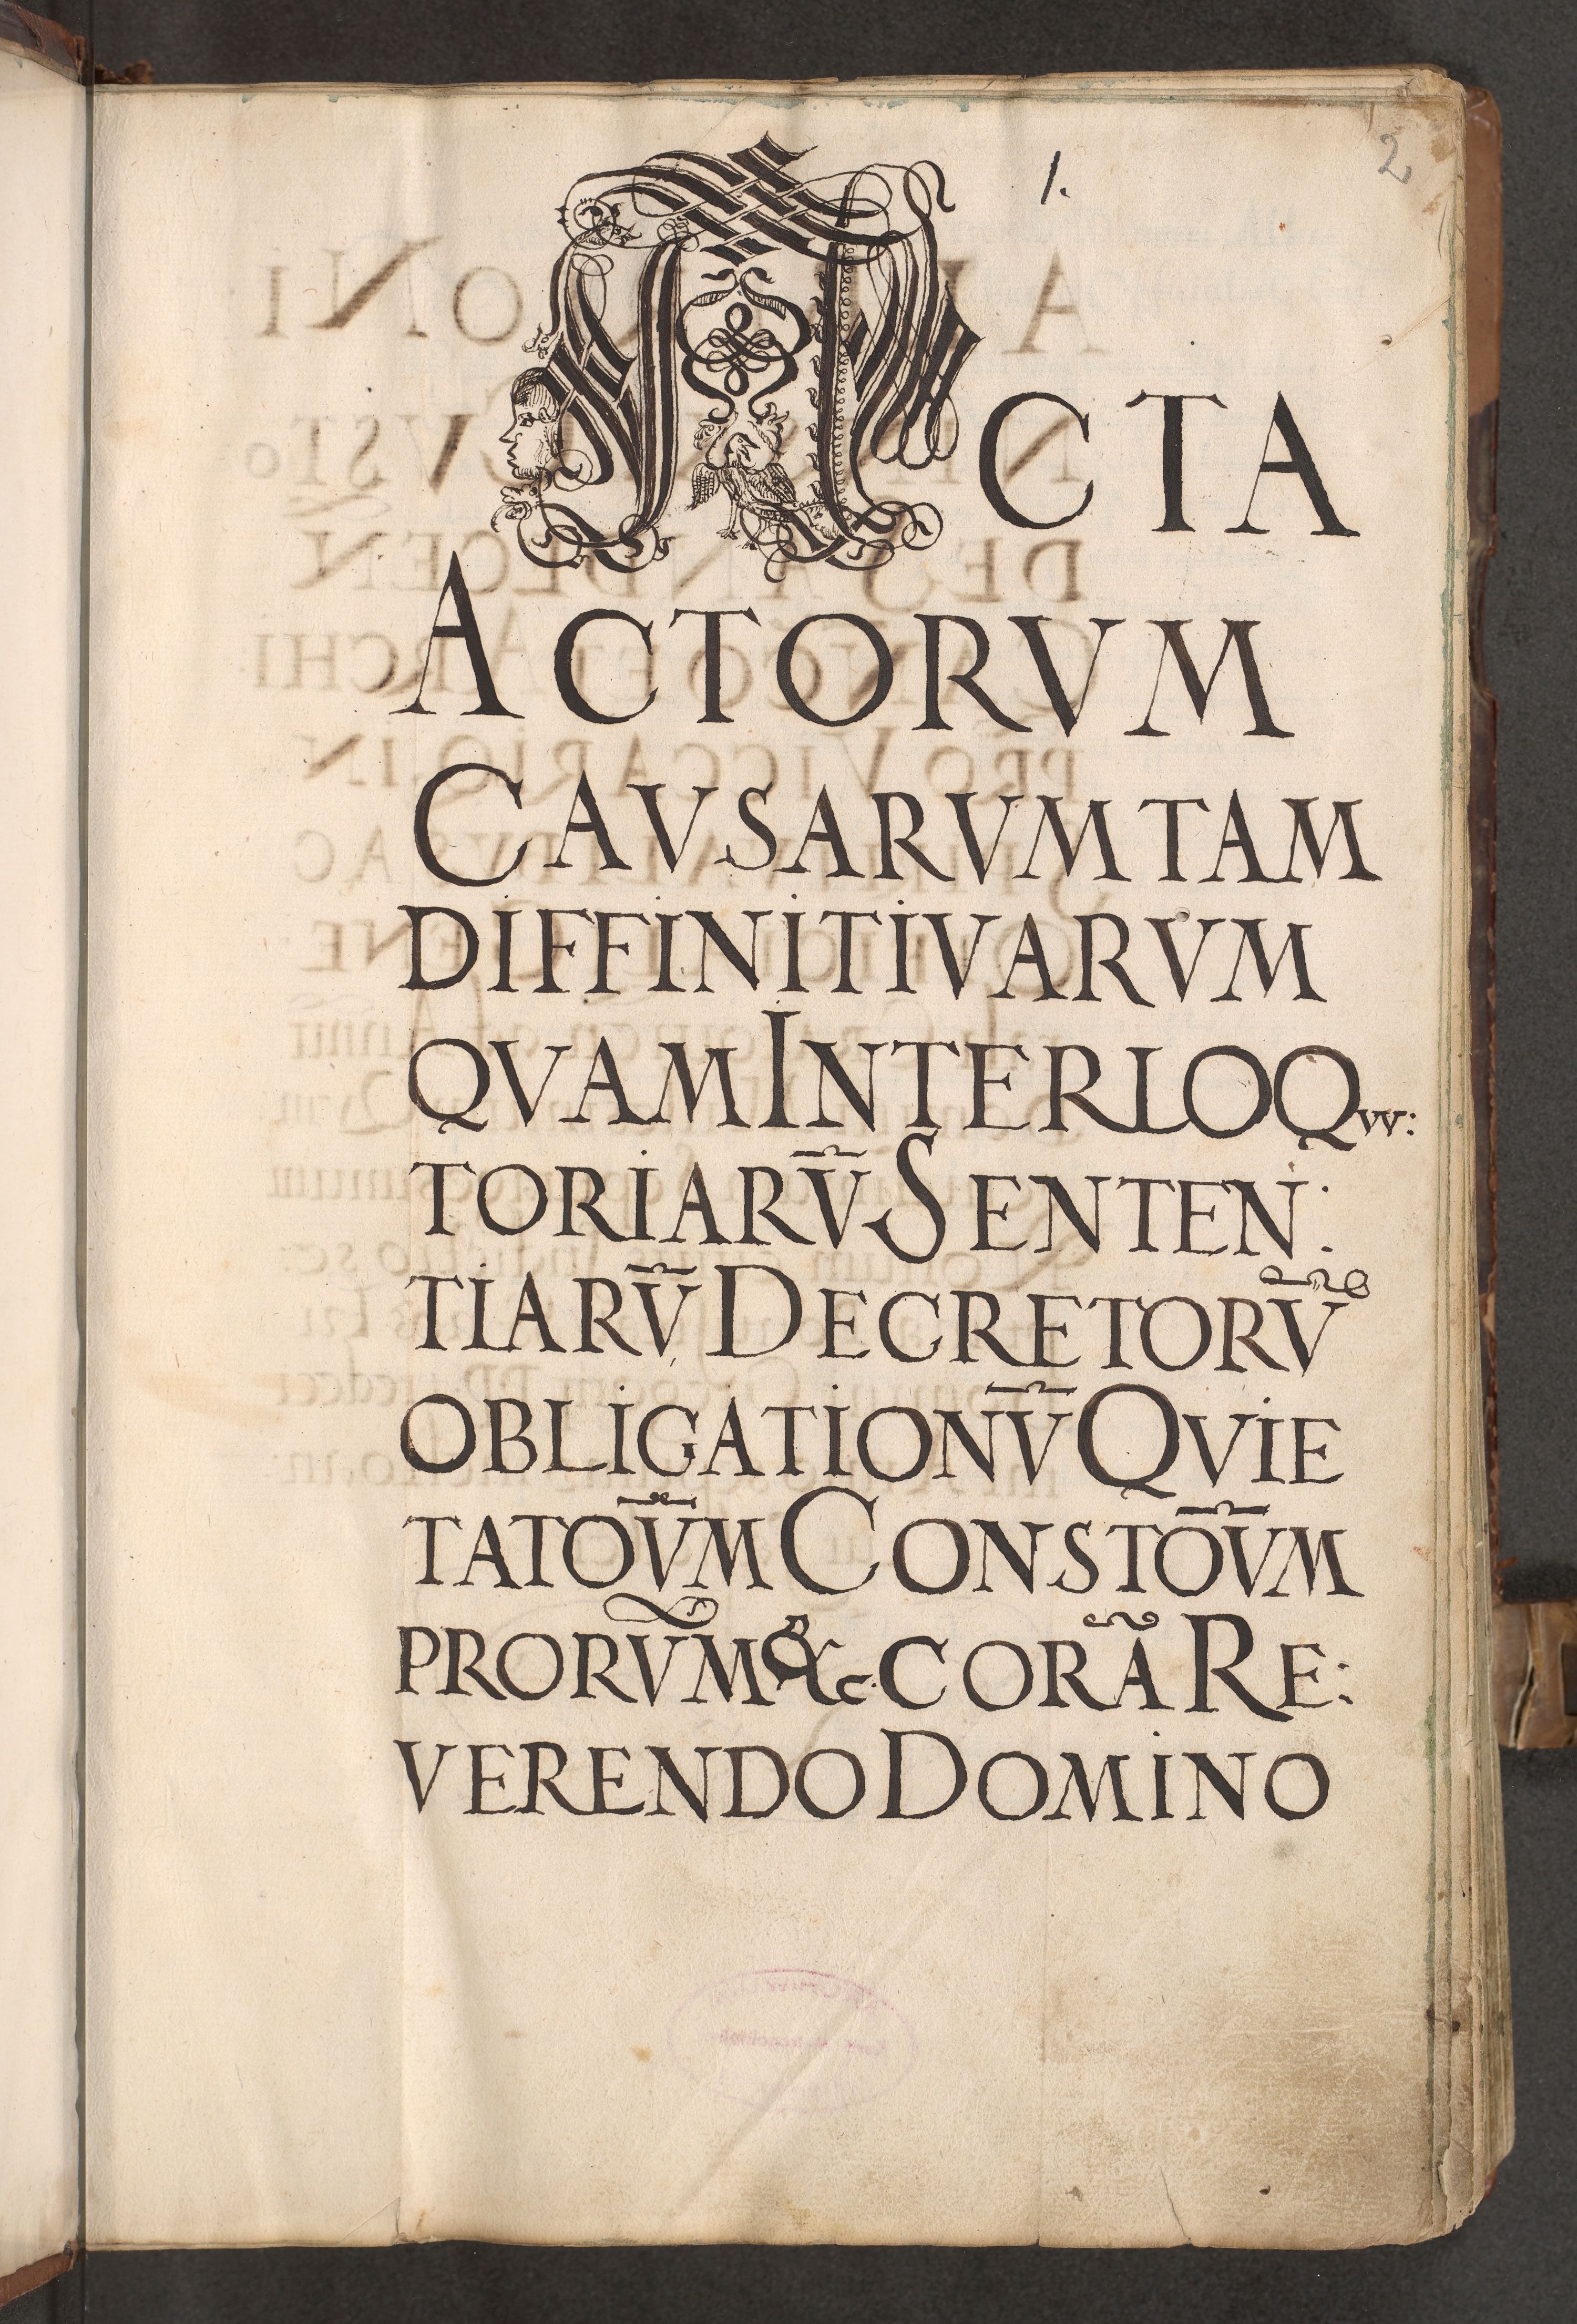 1.
2
ACTA
ACTORVM
CAVSARVM TAM
DIFFINITIVARVM
QVAM INTERLOQVV:
TORIARV̄ SENTEN:
TIARV̄ DECRETORV̄
OBLIGATIONV̄ QVIE
TATOV̄M CONSTOV̄M
PRORVM &c. CORĀ RE:
VERENDO DOMINO